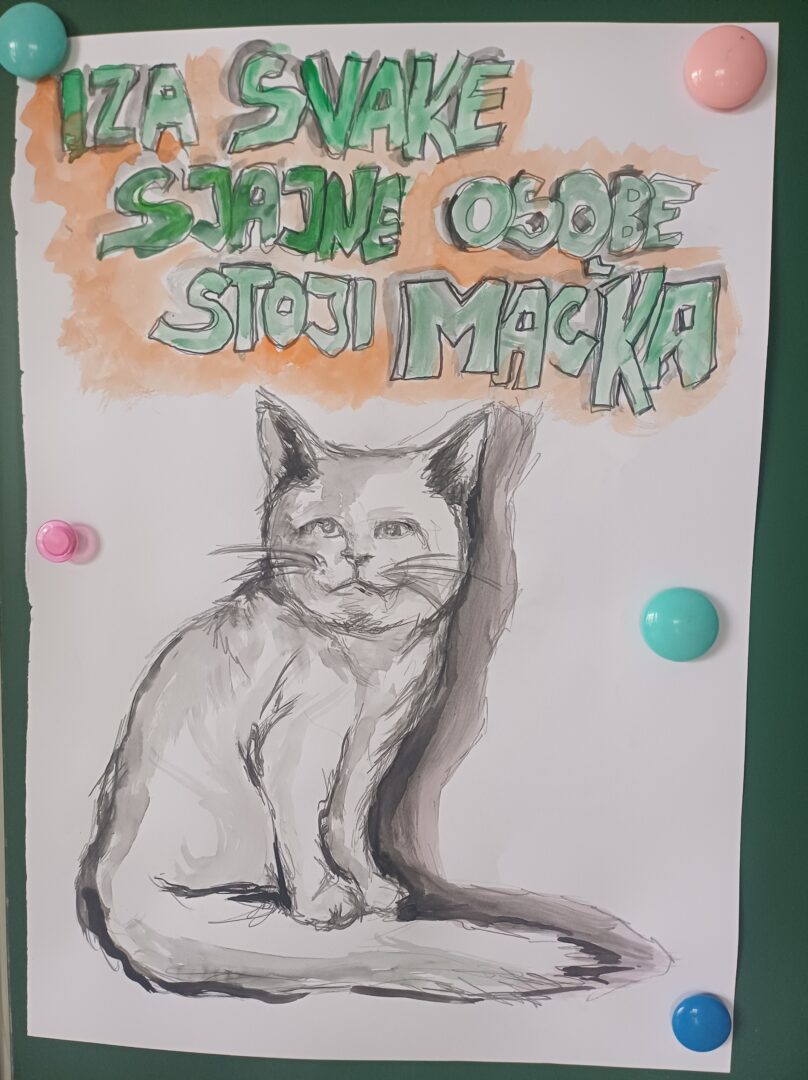 IZA SVAKE
SJAJNE OSOBE
STOJI MAČKA